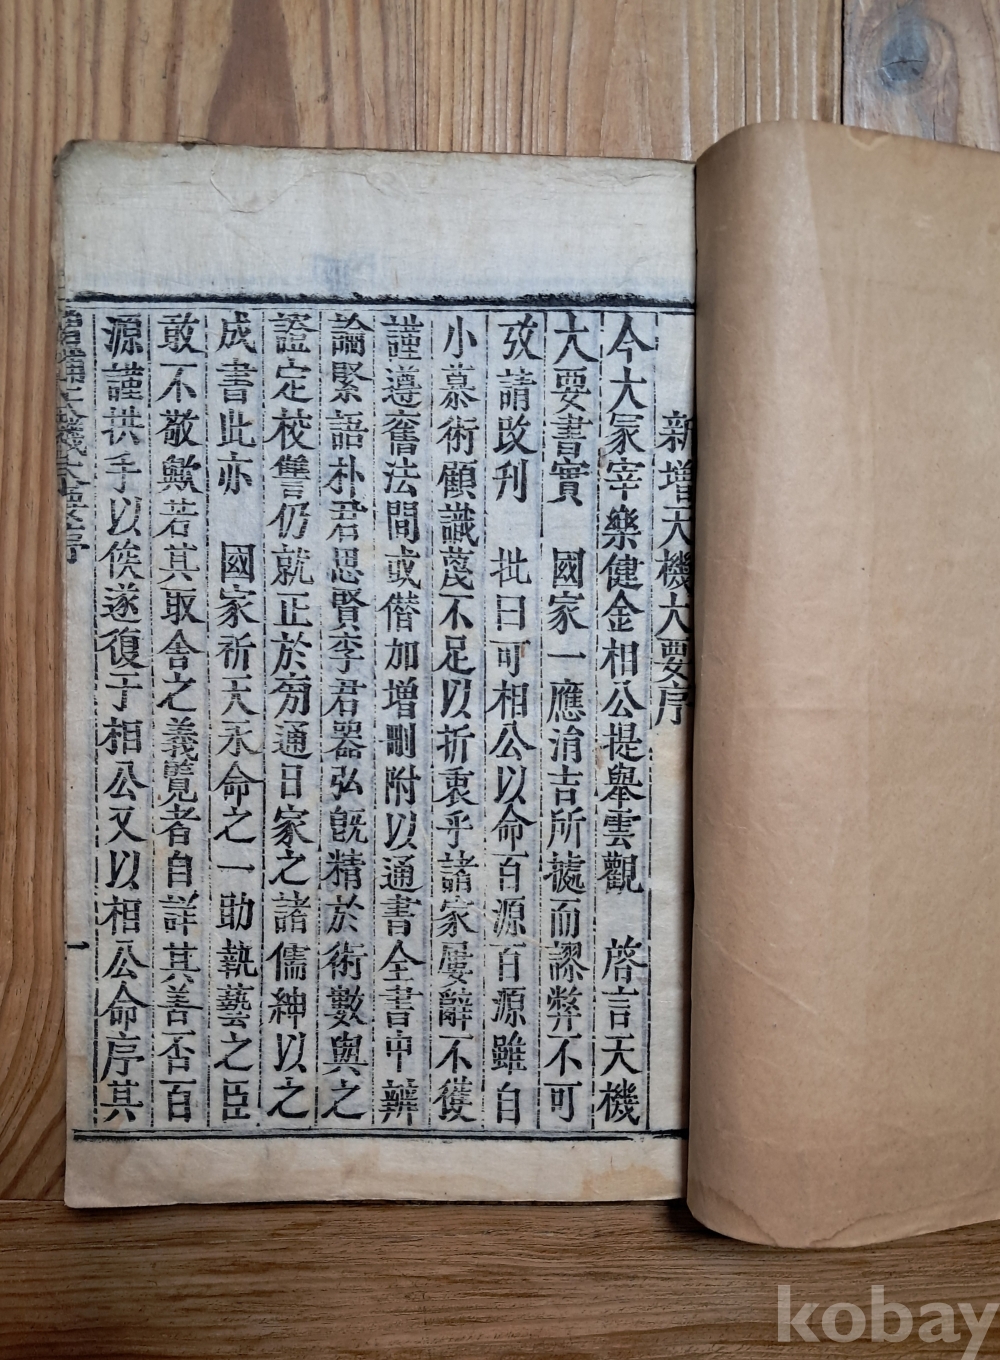 新增天機大要序
今大冢宰樂健金相公提舉雲觀 啓言天機
大要書實 國家一應涓吉所據而謬弊不可
攷請改刊 批曰可相公以命百源百源雖自
小慕術顧識蔑不足以折衷乎諸家屢辭不獲
謹遵舊法間或僭加增刪附以通書全書中辨
論緊語朴君思賢李君器弘旣精於術數與之
證定校讐仍就正於旁通日家之諸儒紳以之
成書此亦 國家祈天永命之一助執藝之臣
敢不敬歟若其取舍之義覽者自詳其善否百
源謹拱手以俟遂復于相公又以相公命序其
增補天機大要序
一
kobay